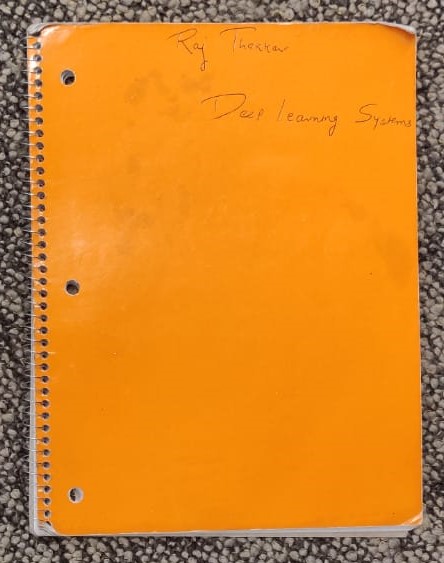 Raj Thakkar
Deep Learning Systems